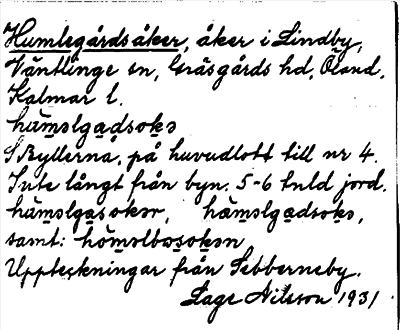 Humlegårdsåker, åker i Lindby,
Väntlinge sn, Gräsgårds hd, Öland,
Kalmar l.
hümslgadsoks
S Byllerna, på huvudlott till nr 4.
Inte långt från byn. 5-6 tnld jord.
hämslgasoksr, hämslgadsoks,
samt: hömslbosoksn
Uppteckningar från Sebberneby.
Lage Nilsson 1931